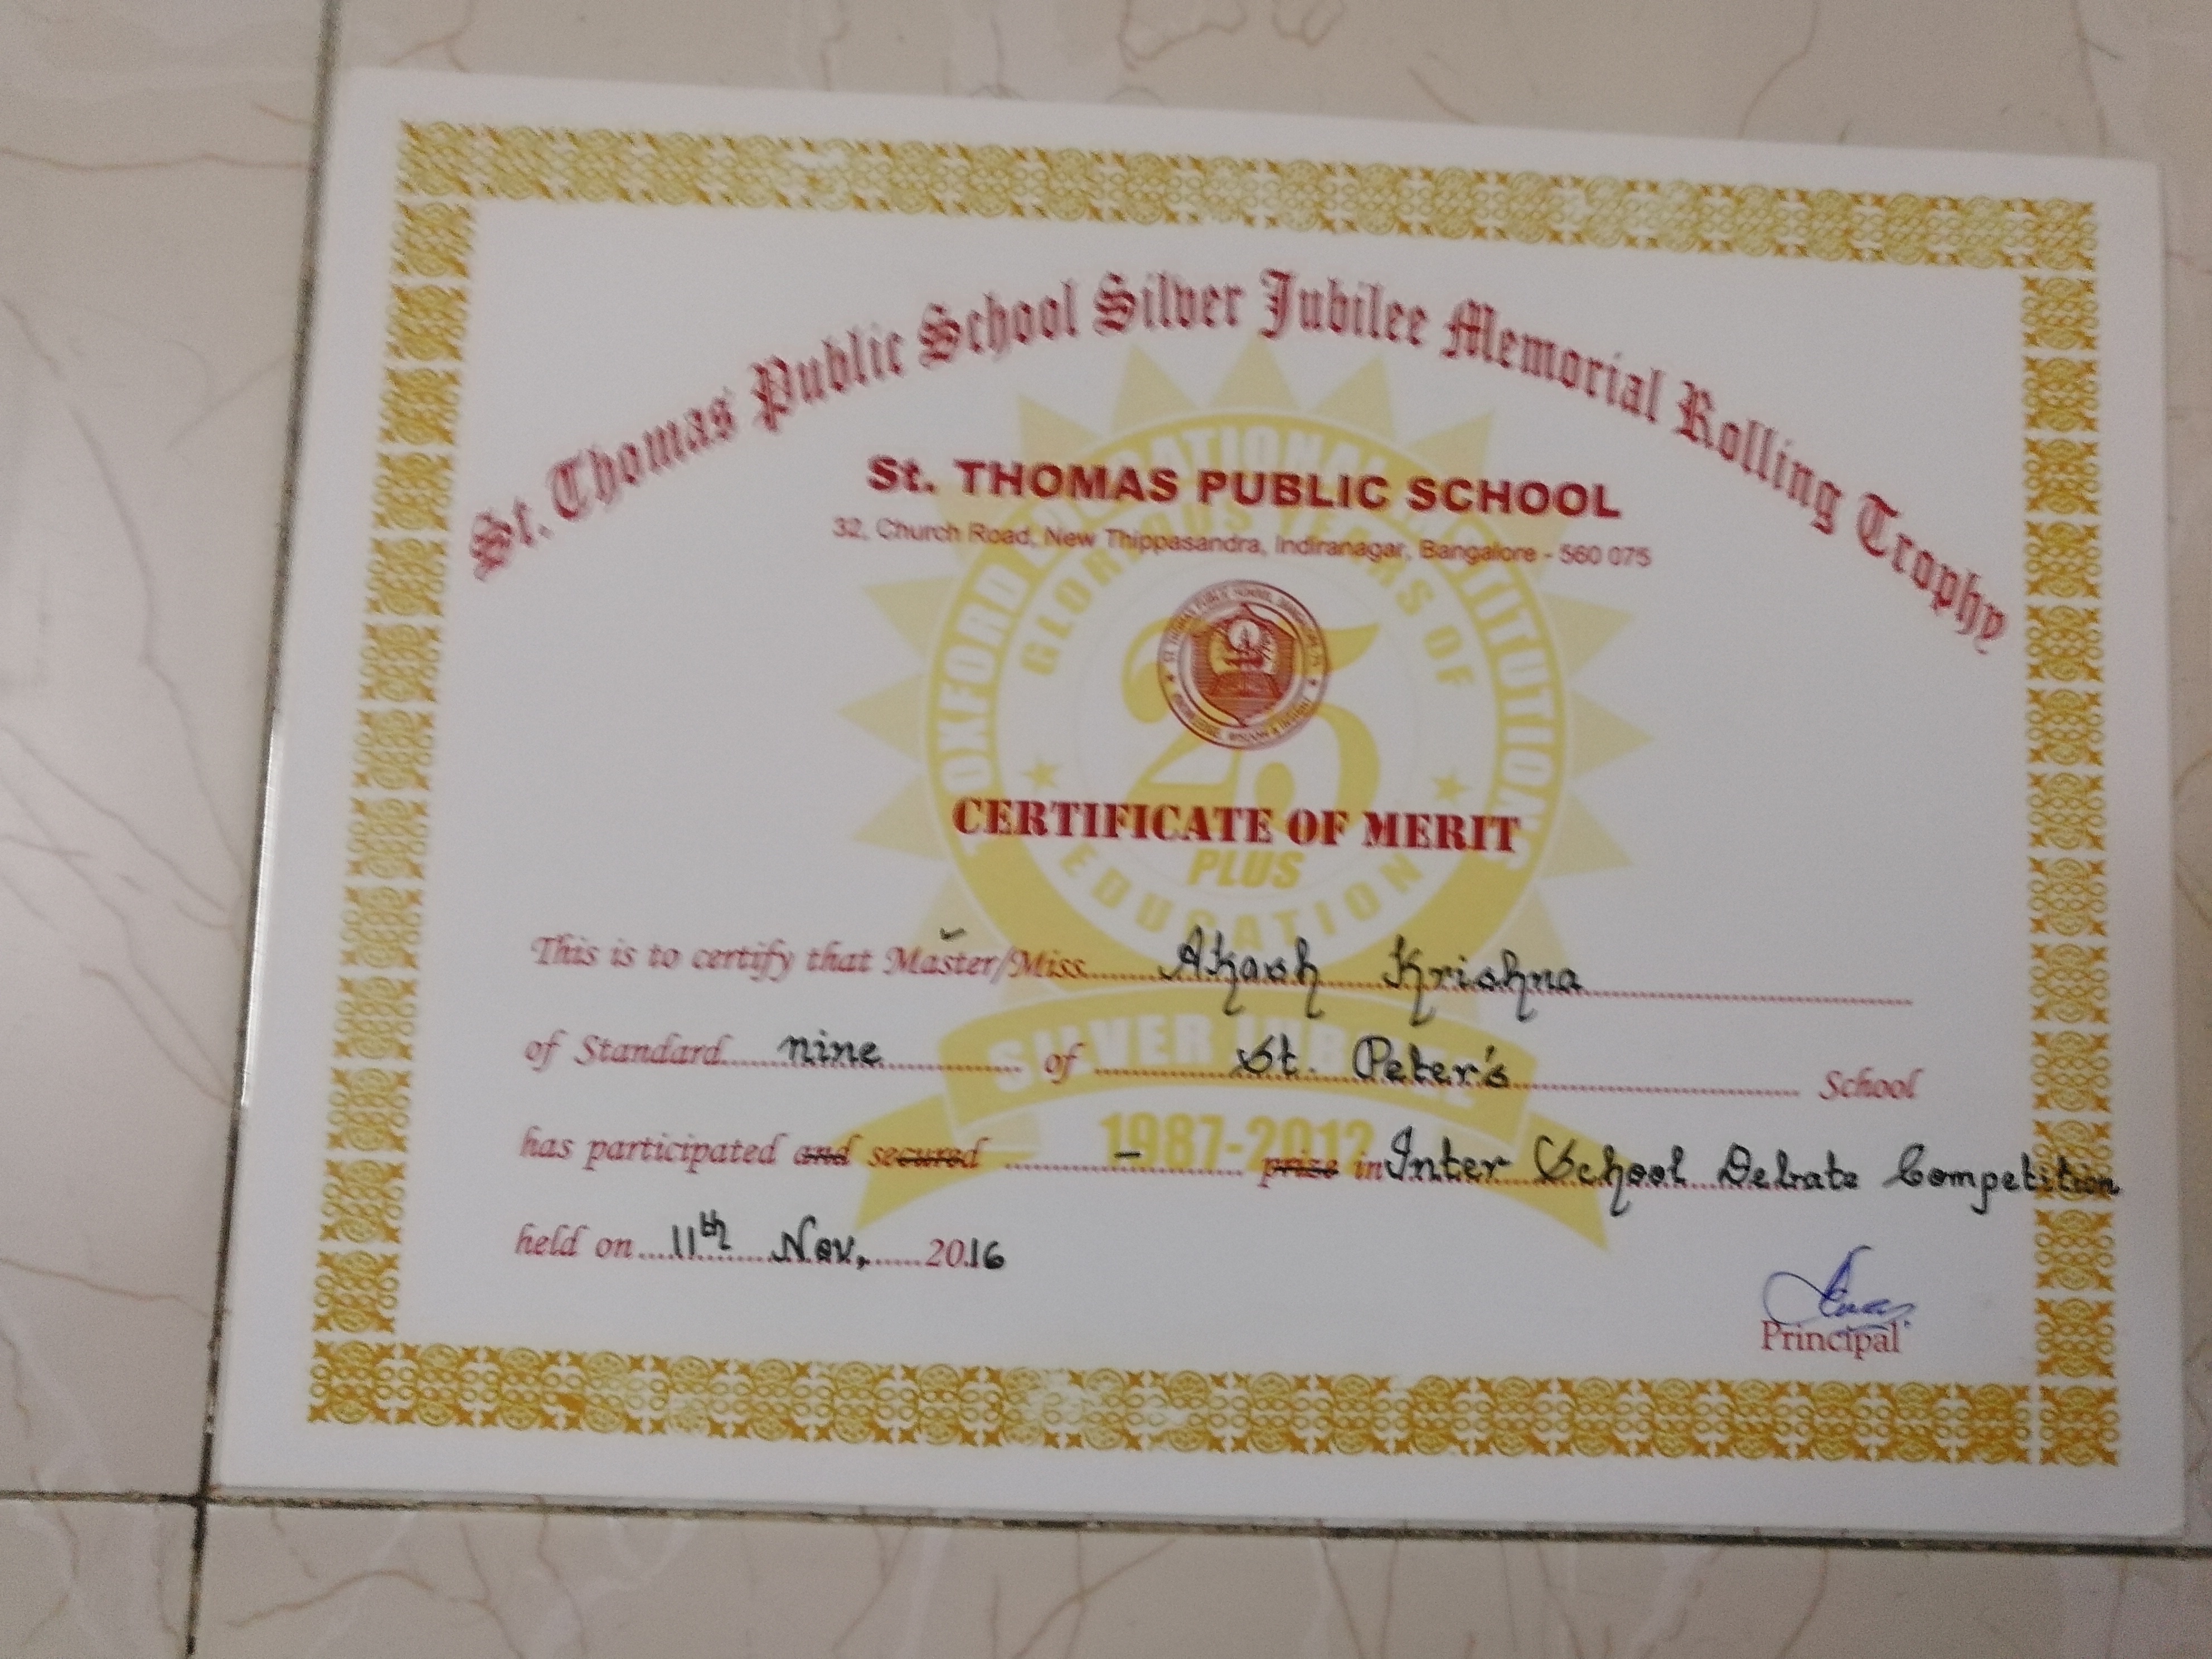 St. Thomas Public School Silver Jubilee Memorial Rolling Trophy
St. THOMAS PUBLIC SCHOOL
32, Church Road, New Thippasandra, Indiranagar, Bangalore - 560 075
OXFORD EDUCATIONAL INSTITUTIONS
GLORIOUS YEARS OF
25
CERTIFICATE OF MERIT
PLUS
EDUCATION
This is to certify that Master/Miss Akash Krishna
of Standard nine of St. Peter's School
SILVER JUBILEE
has participated and secured - prize in Inter School Debate Competition
1987-2012
held on 11th Nov, 2016
Principal